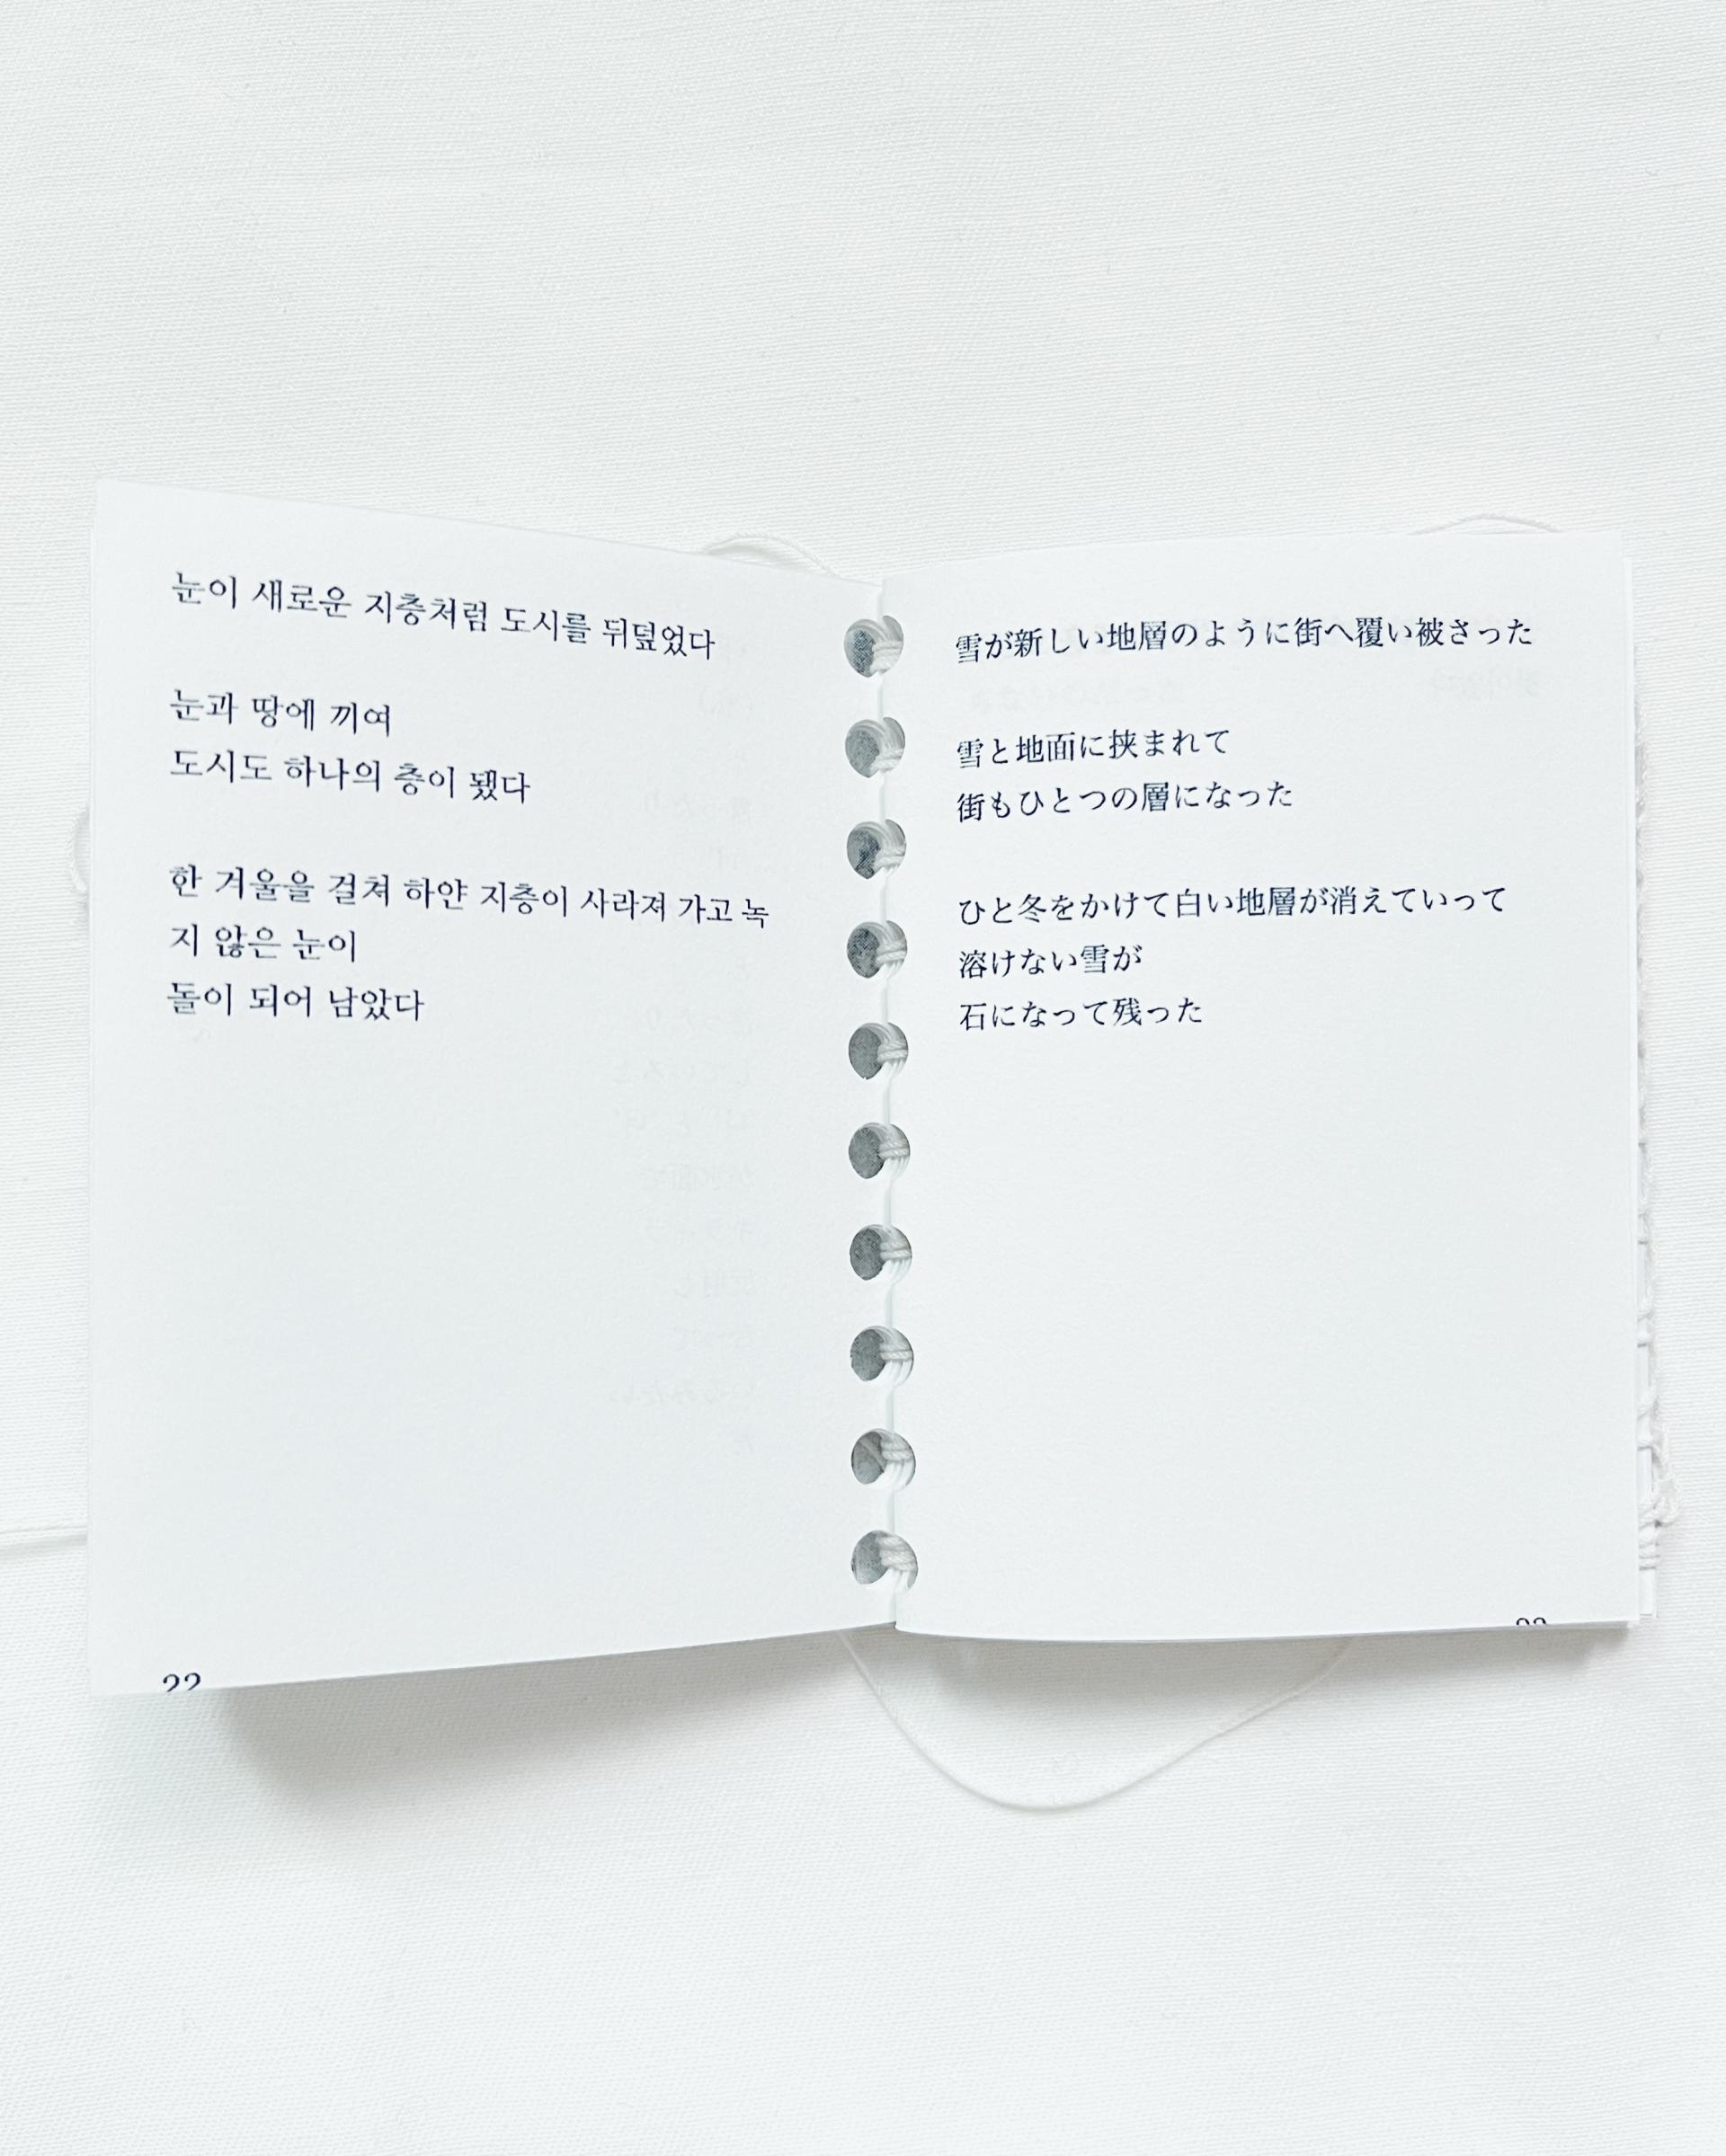 눈이 새로운 지층처럼 도시를 뒤덮었다
눈과 땅에 끼여
도시도 하나의 층이 됐다
한 겨울을 걸쳐 하얀 지층이 사라져 가고 녹
지 않은 눈이
돌이 되어 남았다
22
雪が新しい地層のように街へ覆い被さった
雪と地面に挟まれて
街もひとつの層になった
ひと冬をかけて白い地層が消えていって
溶けない雪が
石になって残った